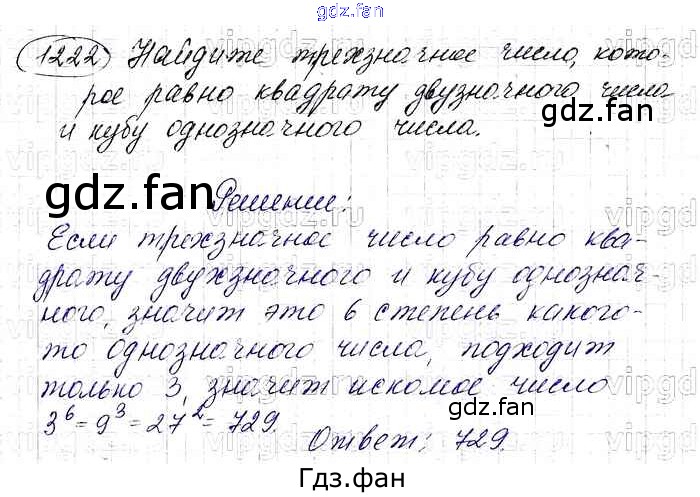 gdz.fan
1222 Найдите трехзначное число, кото-
рое равно квадрату двузначного числа
и кубу однозначного числа.
gdz.fan
gdz.fan
Решение:
Если трехзначное число равно ква-
драту двухзначного и кубу однознач-
ного, значит это 6 степень какого-
то однозначного числа, подходит
только 3, значит искомое число
3⁶ = 9³ = 27² = 729.
gdz.fan
Ответ: 729.
Гдз.фан